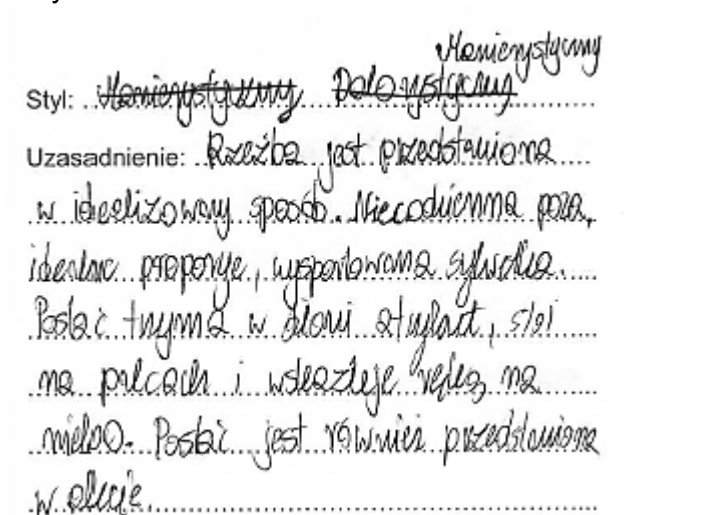 Manierystyczny
Styl: Manierystyczny
Uzasadnienie: Rzeźba jest przedstawiona
w ideslizowany sposób. Niecodzienna poza,
idealne proporcje, wysportowana sylwetka.
Postać trzyma w dłoni atrybut, stoi
na palcach i wskazuje ręką na
niebo. Postać jest również przedstawiona
w akcie.